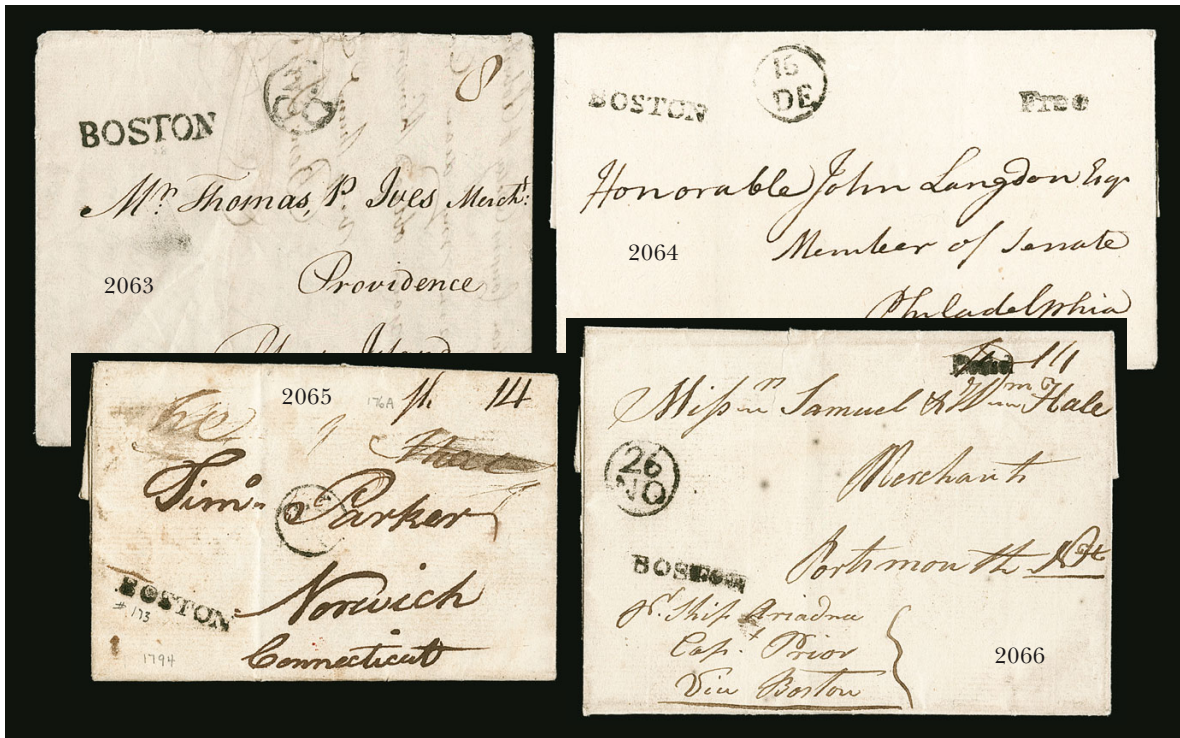 8
BOSTON
Mr. Thomas, P. Ives Mercht:
Providence
2063
15
DE
BOSTON
Free
Honorable John Langdon Esqr
Member of Senate
Philadelphia
2064
2065
176A
sh. 14
Simo. Parker
Norwich
Connecticut
BOSTON
# 173
1794
14
Messrs Samuel & Wm Hale
26
NO
Merchants
Portsmouth NH
BOSTON
pr. Ship Ariadna
Capt. Prior
Via Boston
2066